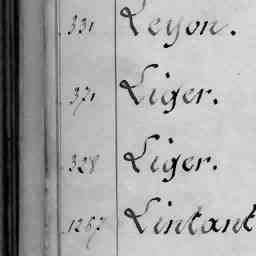 331 Leyon.
371 Liger.
328 Liger.
1267 Lintant